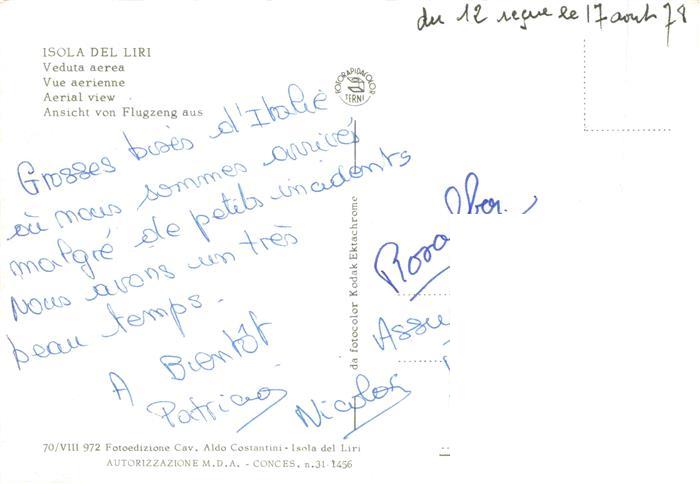 du 12 reçue le 17 aout 78
ISOLA DEL LIRI
Veduta aerea
Vue aerienne
Aerial view
Ansicht von Flugzeng aus
FOTORAPIDACOLOR
TERNI
Grosses bises d'Italie
où nous sommes arrivés
malgré de petits incidents
Nous avons un très
beau temps.
A Bientôt
Patricia
Nicolas
da fotocolor Kodak Ektachrome
Rosa
Assu
70/VIII 972 Fotoedizione Cav. Aldo Costantini - Isola del Liri
AUTORIZZAZIONE M.D.A. - CONCES. n.31-1456